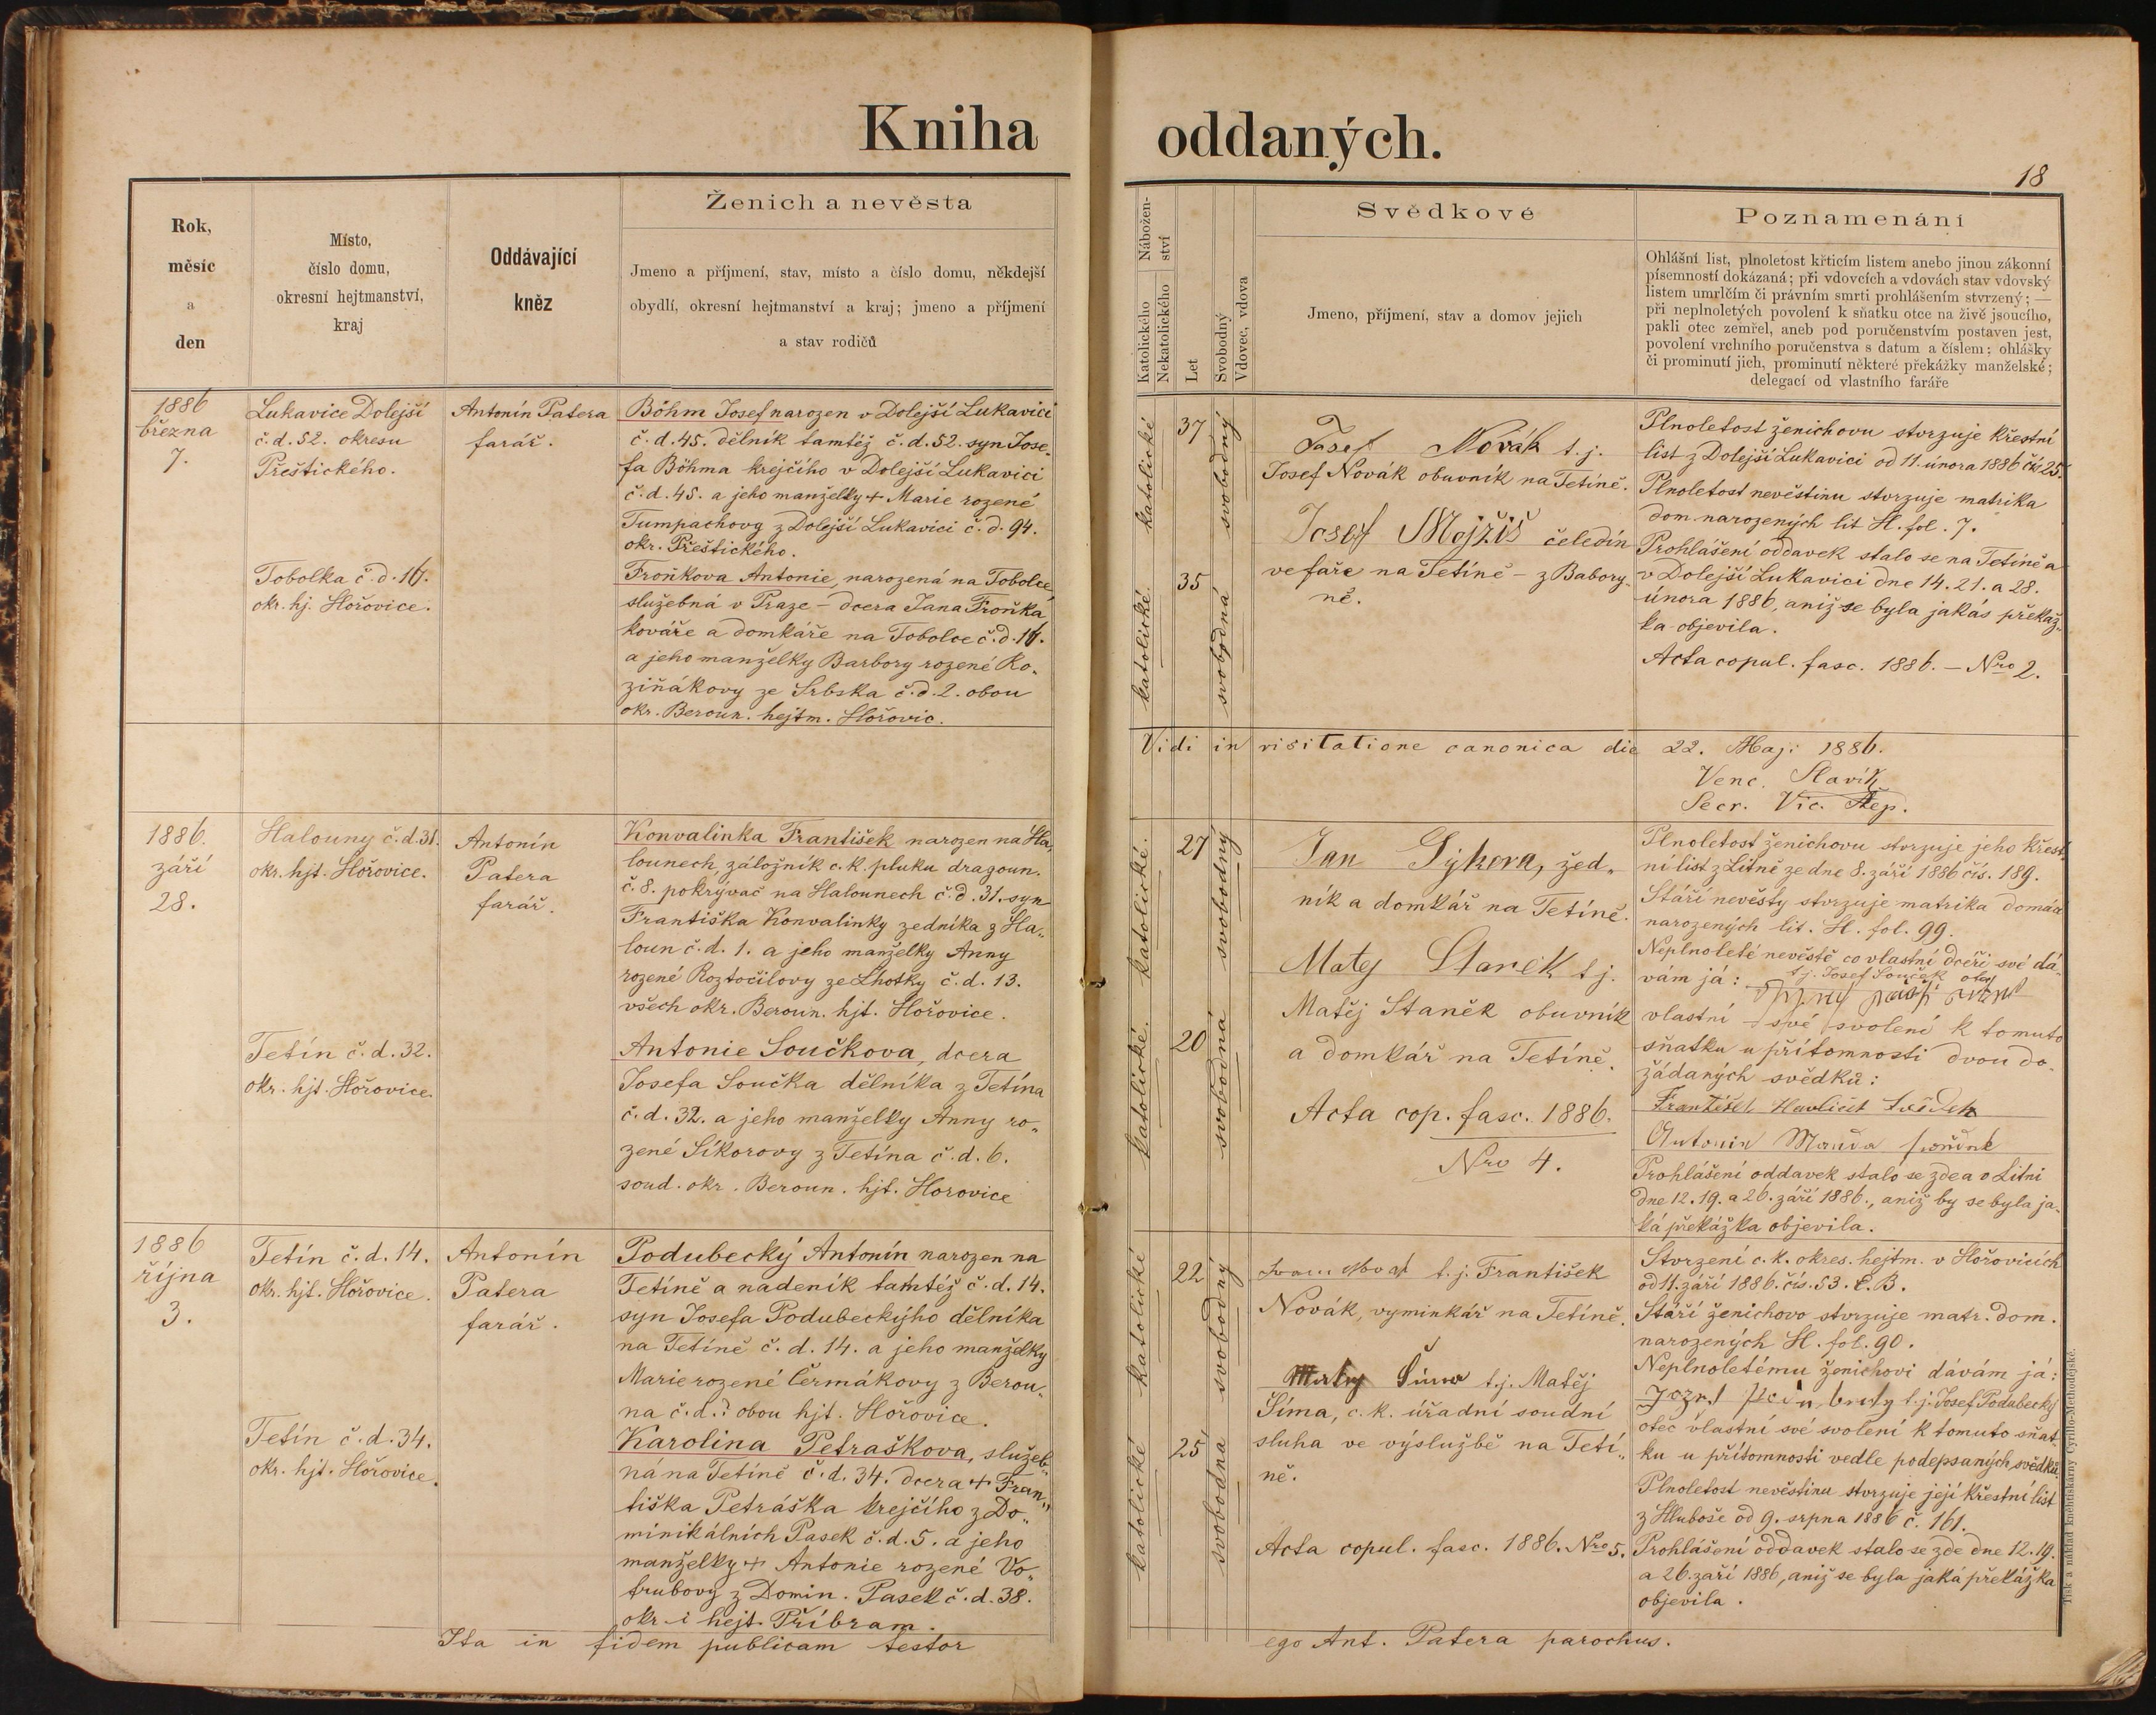 Kniha oddaných.
18
Rok,
měsíc
a
den
Místo,
číslo domu,
okresní hejtmanství,
kraj
Oddávající
kněz
Ženich a nevěsta
Jmeno a příjmení, stav, místo a číslo domu, někdejší
obydlí, okresní hejtmanství a kraj; jmeno a příjmení
a stav rodičů
Nábožen-
ství
Katolického
Nekatolického
Let
Svobodný
Vdovec, vdova
Svědkové
Jmeno, příjmení, stav a domov jejich
Poznamenání
Ohlášní list, plnoletost křticím listem anebo jinou zákonní
písemností dokázaná; při vdovcích a vdovách stav vdovský
listem umrlčím či právním smrti prohlášením stvrzený; —
při neplnoletých povolení k sňatku otce na živě jsoucího,
pakli otec zemřel, aneb pod poručenstvím postaven jest,
povolení vrchního poručenstva s datum a číslem; ohlášky
či prominutí jich, prominutí některé překážky manželské;
delegací od vlastního faráře
1886
března
7.
Lukavice Dolejší
č.d. 52. okresu
Přeštického.
Antonín Patera
farář.
Böhm Josef narozen v Dolejší Lukavici
č.d. 45. dělník tamtéž č.d. 52. syn Jose-
fa Böhma krejčího v Dolejší Lukavici
č.d. 45. a jeho manželky + Marie rozené
Tumpachovy z Dolejší Lukavici č.d. 94.
okr. Přeštického.
Tobolka č.d. 16.
okr. hj. Hořovice.
Froňkova Antonie, narozená na Tobolce,
služebná v Praze – dcera Jana Froňka
kováře a domkáře na Tobolce č.d. 16.
a jeho manželky Barbory rozené Ko-
ziňákovy ze Srbska č.d. 2. obou
okr. Beroun. hejtm. Hořovic.
katolické
37
svobodný
katolické
35
svobodná
Josef Novák t.j.
Josef Novák obuvník na Tetíně.
Josef Mojžíš čeledín
ve faře na Tetíně – z Babory-
ně.
Plnoletost ženichovu stvrzuje křestní
list z Dolejší Lukavici od 11. února 1886 čís 25.
Plnoletost nevěstinu stvrzuje matrika
dom. narozených lit H. fol. 7.
Prohlášení oddavek stalo se na Tetíně a
v Dolejší Lukavici dne 14. 21. a 28.
února 1886, aniž se byla jakás překáž-
ka objevila.
Acta copul. fasc. 1886. – Nro 2.
Vidi in visitatione canonica die 22. Maji 1886.
Venc. Slavík
Secr. Vic. Rep.
1886.
září
28.
Halouny č.d. 31.
okr. hjt. Hořovice.
Antonín
Patera
farář.
Konvalinka František narozen na Ha-
lounech záložník c.k. pluku dragoun.
č. 8. pokrývač na Halounech č.d. 31. syn
Františka Konvalinky zedníka z Ha-
loun č.d. 1. a jeho manželky Anny
rozené Roztočilovy ze Lhotky č.d. 13.
všech okr. Beroun. hjt. Hořovice.
Tetín č.d. 32.
okr. hjt. Hořovice.
Antonie Součkova, dcera
Josefa Součka dělníka z Tetína
č.d. 32. a jeho manželky Anny ro-
zené Síkorovy z Tetína č.d. 6.
soud. okr. Beroun. hjt. Horovice
katolické.
27
svobodný
katolické.
20
svobodná
Jan Sýkora, zed-
ník a domkář na Tetíně.
Matěj Staněk t.j.
Matěj Staněk obuvník
a domkář na Tetíně.
Acta cop. fasc. 1886.
Nro 4.
Plnoletost ženichovu stvrzuje jeho křest-
ní list z Litně ze dne 8. září 1886 čís. 189.
Stáří nevěsty stvrzuje matrika domácí
narozených lit. H. fol. 99.
Neplnoleté nevěstě co vlastní dceři své dá-
vám já: t.j. Josef Souček otec
vlastní své svolení k tomuto
sňatku u přítomnosti dvou do-
žádaných svědků:
František Havlíček svědek
Antonín Manda
Prohlášení oddavek stalo se zde a v Litni
dne 12. 19. a 26. září 1886., aniž by se byla ja-
ká překážka objevila.
1886
října
3.
Tetín č.d. 14.
okr. hjt. Hořovice.
Antonín
Patera
farář.
Podubecký Antonín narozen na
Tetíně a nadeník tamtéž č.d. 14.
syn Josefa Podubeckýho dělníka
na Tetíně č.d. 14. a jeho manželky
Marie rozené Čermákovy z Berou-
na č.d.? obou hjt. Hořovice.
Tetín č.d. 34.
okr. hjt. Hořovice.
Karolina Petraškova, služeb-
ná na Tetíně č.d. 34. dcera + Fran-
tiška Petráška krejčího z Do-
minikálních Pasek č.d. 5. a jeho
manželky + Antonie rozené Vo-
trubovy z Domin. Pasek č.d. 38.
okr. i hejt. Příbram.
katolické
22
svobodný
katolické
25
svobodná
t.j. František
Novák, vyminkář na Tetíně.
Matěj Šíma t.j. Matěj
Šíma, c.k. úřadní soudní
sluha ve výslužbě na Tetí-
ně.
Acta copul. fasc. 1886. Nro 5.
Stvrzení c.k. okres. hejtm. v Hořovicích
od 11. září 1886. čís. 53. E.B.
Stáří ženichovo stvrzuje matr. dom.
narozených H. fol. 90.
Neplnoletému ženichovi dávám já:
t.j. Josef Podubecký
otec vlastní své svolení k tomuto sňat-
ku u přítomnosti vedle podepsaných svědků.
Plnoletost nevěstinu stvrzuje její křestní list
z Hluboše od 9. srpna 1886 č. 161.
Prohlášení oddavek stalo se zde dne 12. 19.
a 26. září 1886, aniž se byla jaká překážka
objevila.
Ita in fidem publicam testor ego Ant. Patera parochus.
Tisk a náklad kněhtiskárny Cyrillo-Methodějské.